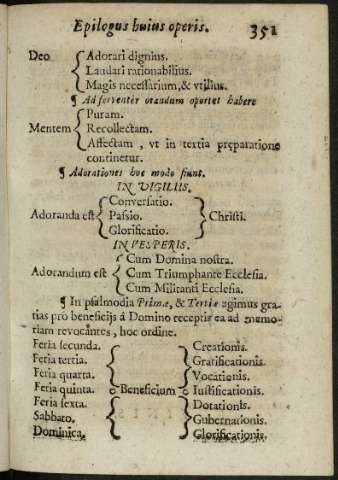 Epilogus huius operis. 351
Deo { Adorari dignius.
Laudari rationabilius.
Magis necessarium, & vtilius.
¶ Ad feruenter orandum oportet habere
Mentem { Puram.
Recollectam.
Affectam, vt in tertia preparatione
continetur.
¶ Adorationes hoc modo fiunt.
IN VIGILIIS.
Adoranda est { Conversatio. } Christi.
Passio.
Glorificatio.
IN VESPERIS.
Adorandum est { Cum Domina nostra.
Cum Triumphante Ecclesia.
Cum Militanti Ecclesia.
¶ In psalmodia Primæ, & Tertiæ agimus gra-
tias pro beneficijs à Domino receptis ea ad memo-
riam revocantes, hoc ordine.
Feria secunda. } Beneficium { Creationis.
Feria tertia. Gratificationis.
Feria quarta. Vocationis.
Feria quinta. Iustificationis.
Feria sexta. Dotationis.
Sabbato. Gubernationis.
Dominica. Glorificationis.